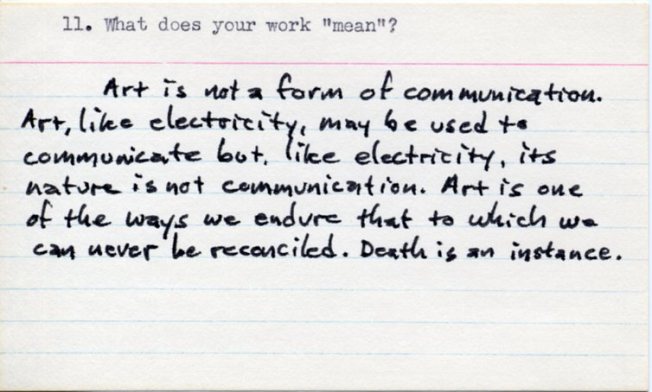 11. What does your work "mean"?
Art is not a form of communication.
Art, like electricity, may be used to
communicate but, like electricity, its
nature is not communication. Art is one
of the ways we endure that to which we
can never be reconciled. Death is an instance.